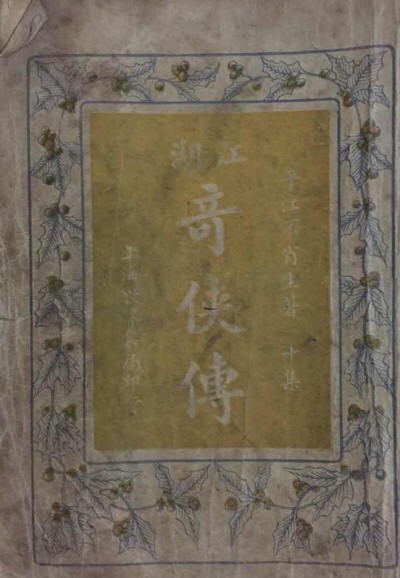 平江不肖生著 十集
江湖
奇俠傳
上海世界書局印行